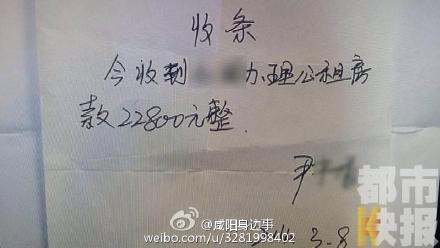 收条
今收到 办理公租房
款22800元整.
尹
3.8
都市快报
@咸阳身边事
weibo.com/u/3281998402